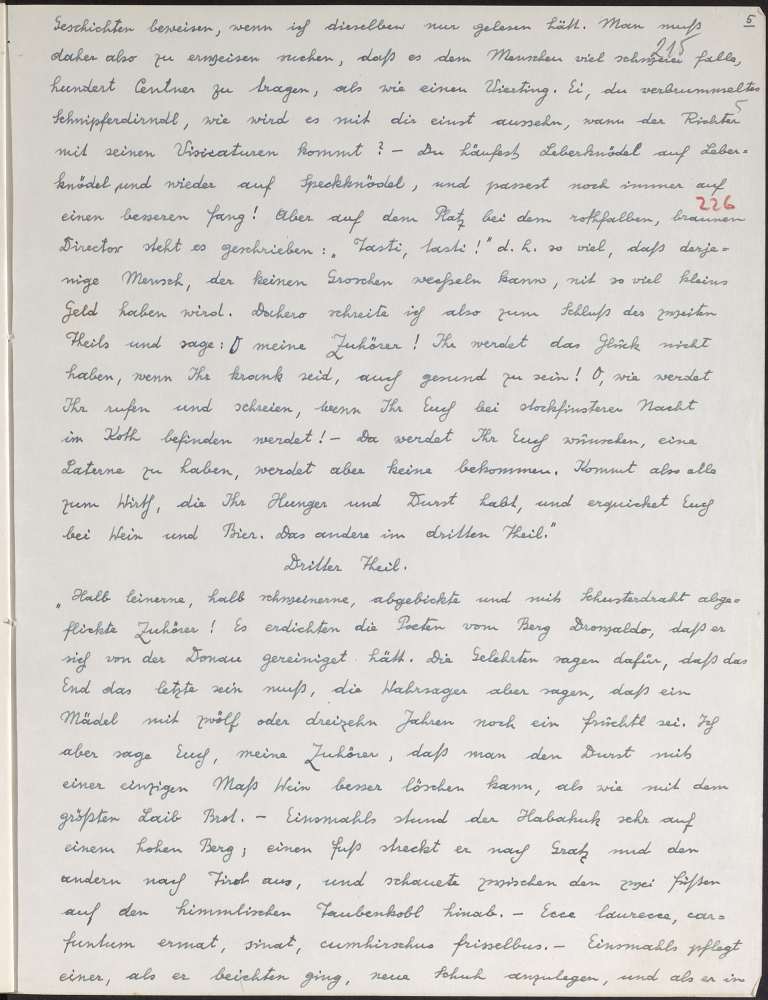 5
Geschichten beweisen, wenn ich dieselben nur gelesen hätt. Man muß
215
daher also zu erweisen suchen, daß es dem Menschen viel schwerer falle,
hundert Centner zu tragen, als wie einen Vierting. Ei, du verbrummeltes
5
Schnipferdirndl, wie wird es mit dir einst aussehn, wann der Richter
mit seinen Visicaturen kommt? – Du häufest Leberknödel auf Leber=
knödel und wieder auf Speckknödel, und passest noch immer auf
226
einen besseren Fang! Aber auf dem Platz bei dem rothfalben, braunen
Director steht es geschrieben: „Tasti, tasti!" d. h. so viel, daß derje=
nige Mensch, der keinen Groschen wechseln kann, nit so viel kleins
Geld haben wird. Dahero schreite ich also zum Schluß des zweiten
Theils und sage: O meine Zuhörer! Ihr werdet das Glück nicht
haben, wenn Ihr krank seid, auch gesund zu sein! O, wie werdet
Ihr rufen und schreien, wenn Ihr Euch bei stockfinsterer Nacht
im Koth befinden werdet! – Da werdet Ihr Euch wünschen, eine
Laterne zu haben, werdet aber keine bekommen. Kommt also alle
zum Wirth, die Ihr Hunger und Durst habt, und erquicket Euch
bei Wein und Bier. Das andere im dritten Theil."
Dritter Theil.
„Halb leinerne, halb schweinerne, abgebickte und mits Schusterdraht abge=
flickte Zuhörer! Es erdichten die Poeten vom Berg Drowaldo, daß er
sich von der Donau gereiniget hätt. Die Gelehrten sagen dafür, daß das
End das letzte sein muß, die Wahrsager aber sagen, daß ein
Mädel mit zwölf oder dreizehn Jahren noch ein Früchtl sei. Ich
aber sage Euch, meine Zuhörer, daß man den Durst mits
einer einzigen Maß Wein besser löschen kann, als wie mit dem
größten Laib Brot. – Einsmahls stund der Habakuk sehr auf
einem hohen Berg; einen Fuß streckt er nach Gratz und den
andern nach Tirol aus, und schauete zwischen den zwei Füßen
auf den himmlischen Taubenkobl hinab. – Ecce laurecce, car=
funtum ermat, sinat, cumhirschus frisselbus. – Einsmahls pflegt
einer, als er beichten ging, neue Schuh anzulegen, und als er in